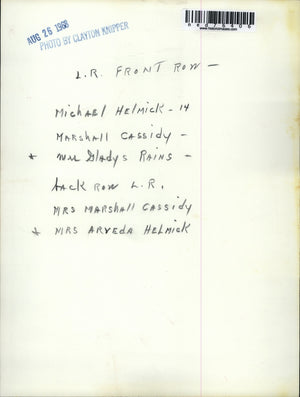 AUG 26 1966
PHOTO BY CLAYTON KNIPPER
L.R. FRONT ROW -
MICHAEL HELMICK - 14
MARSHALL CASSIDY -
* MRS GLADYS RAINS -
BACK ROW L.R.
MRS MARSHALL CASSIDY
* MRS ARVEDA HELMICK